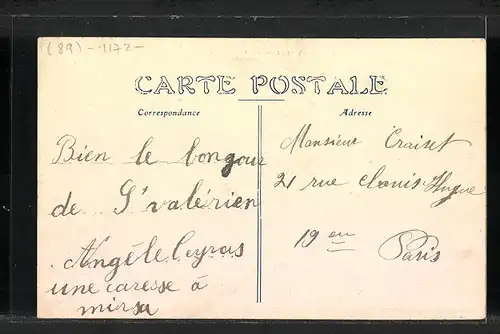 (89) - 1172 -
CARTE POSTALE
Correspondance
Adresse
Bien le bongour
de S' valérien
Angèle Ceyras
une caresse à
mirsa
Monsieur Craiset
21 rue Clouis Hugue
19 em
Paris